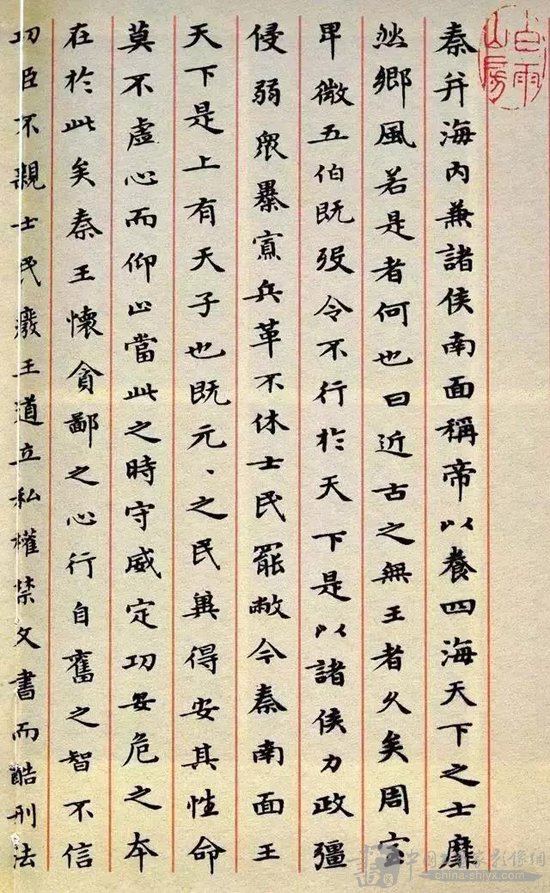 白雨山房
秦并海内兼諸侯南面稱帝以養四海天下之士靡
然鄉風若是者何也曰近古之無王者久矣周室
卑微五伯既歿令不行於天下是以諸侯力政彊
侵弱眾暴寡兵革不休士民罷敝今秦南面王
天下是上有天子也既元、之民冀得安其性命
莫不虛心而仰上當此之時守威定功安危之本
在於此矣秦王懷貪鄙之心行自奮之智不信
功臣不親士民廢王道立私權禁文書而酷刑法
china-shiyx.com